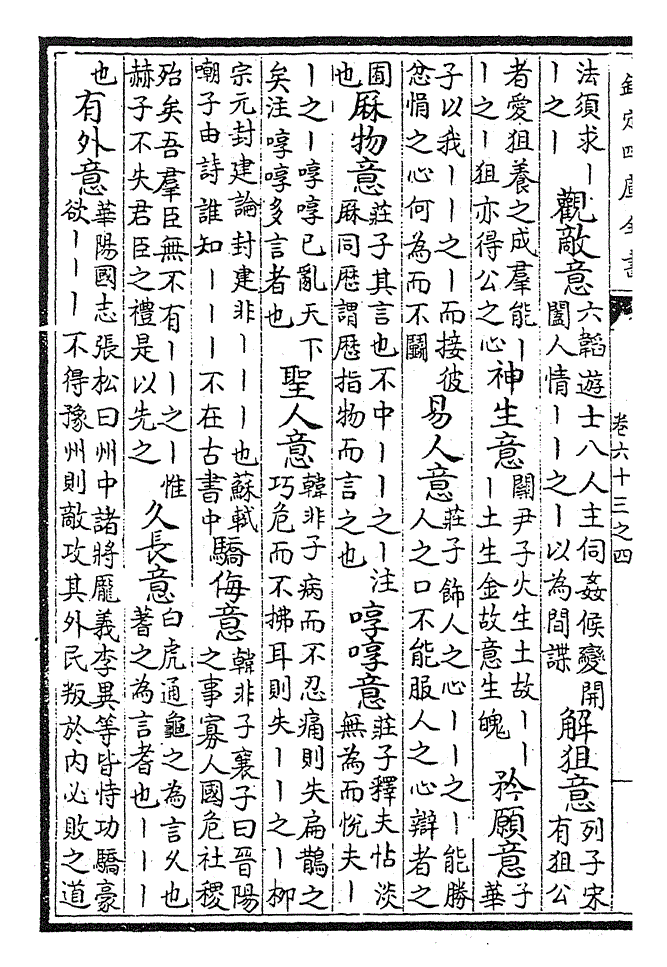 欽定四庫全書
卷六十三之四
法須求｜
｜之｜
觀敵意
六韜遊士八人主伺姦候變開
闔人情｜｜之｜以為間諜
解狙意
列子宋
有狙公
者愛狙養之成羣能｜
｜之｜狙亦得公之心
神生意
關尹子火生土故｜｜
｜土生金故意生魄
矜願意
子
華
子以我｜｜之｜而接彼
忿悁之心何為而不鬭
易人意
莊子飾人之心｜｜之｜能勝
人之口不能服人之心辯者之
囿
也
厤物意
莊子其言也不中｜｜之｜注
厤同歷謂歷指物而言之也
啍啍意
莊子釋夫恬淡
無為而悅夫｜
｜之｜啍啍已亂天下
矣注啍啍多言者也
聖人意
韓非子病而不忍痛則失扁鵲之
巧危而不拂耳則失｜｜之｜栁
宗元封建論封建非｜｜｜也蘇軾
嘲子由詩誰知｜｜｜不在古書中
驕侮意
韓非子襄子曰晉陽
之事寡人國危社稷
殆矣吾羣臣無不有｜｜之｜惟
赫子不失君臣之禮是以先之
久長意
白虎通龜之為言久也
蓍之為言耆也｜｜｜
也
有外意
華陽國志張松曰州中諸將龎義李異等皆恃功驕豪
欲｜｜｜不得豫州則敵攻其外民叛於內必敗之道